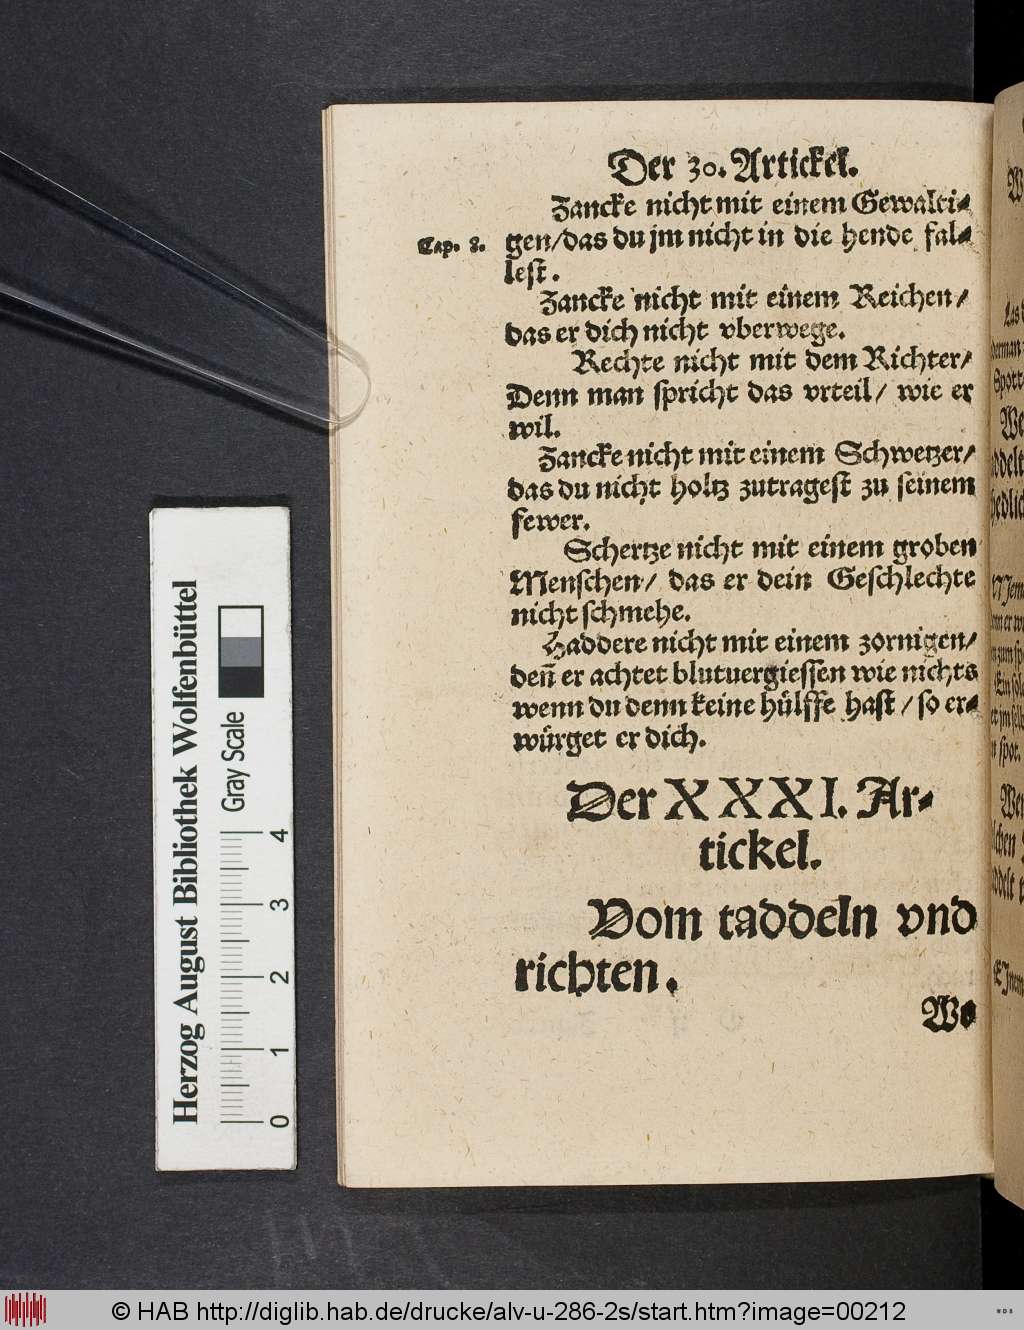 Der 30. Artickel.
Zancke nicht mit einem Gewalti-
Cap. 8.
gen/das du jm nicht in die hende fal-
lest.
Zancke nicht mit einem Reichen/
das er dich nicht vberwege.
Rechte nicht mit dem Richter/
Denn man spricht das vrteil/ wie er
wil.
Zancke nicht mit einem Schwetzer/
das du nicht holtz zutragest zu seinem
fewer.
Schertze nicht mit einem groben
Menschen/ das er dein Geschlechte
nicht schmehe.
Haddere nicht mit einem zornigen/
deñ er achtet blutuergiessen wie nichts
wenn du denn keine hülffe hast/ so er-
würget er dich.
Der XXXI. Ar-
tickel.
Vom taddeln vnd
richten.
We
Herzog August Bibliothek Wolfenbüttel
Gray Scale
0 1 2 3 4
© HAB http://diglib.hab.de/drucke/alv-u-286-2s/start.htm?image=00212